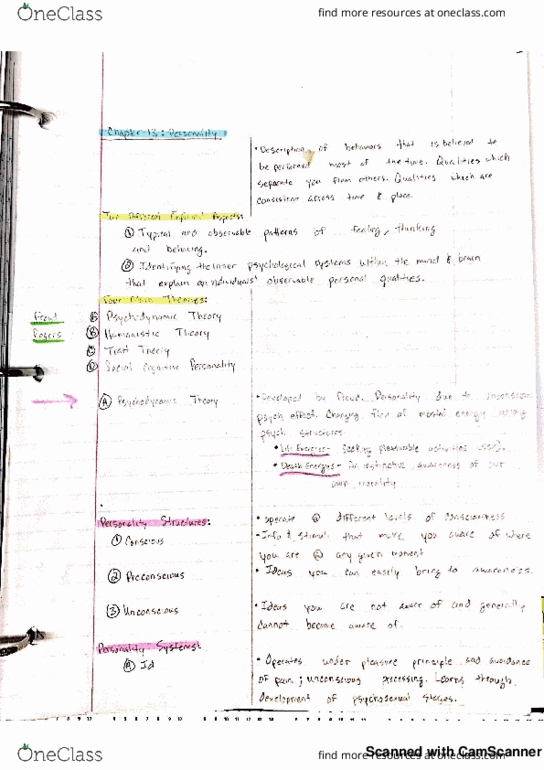 OneClass
find more resources at oneclass.com
Chapter 13: Personality
• Description of behaviors that is believed to
be performed most of the time. Qualities which
separate you from others. Qualities which are
consistent across time & place.
Two Different Explained Aspects:
① Typical and observable patterns of feeling, thinking
and behaving.
② Identifying the inner psychological systems within the mind & brain
that explain an individuals' observable personal qualities.
Four Main Theories:
Freud Ⓐ Psychodynamic Theory
Rogers Ⓑ Humanistic Theory
Ⓒ Trait Theory
Ⓓ Social Cognitive Personality
Ⓐ Psychodynamic Theory
• Developed by Freud. Personality due to unconscious
psych effect. Changing flow of mental energy among
psych structures.
• Life Energies- Seeking pleasurable activities
• Death Energies- An instinctive awareness of our
own mortality
Personality Structures:
• Operate @ different levels of consciousness
① Conscious
• Info & stimuli that make you aware of where
you are @ any given moment
② Preconscious
• Ideas you can easily bring to awareness.
③ Unconscious
• Ideas you are not aware of and generally
cannot become aware of.
Personality Systems:
Ⓐ Id
• Operates under pleasure principle and avoidance
of pain; unconscious processing. Learns through
development of psychosexual stages.
OneClass
find more resources at oneclass.com
Scanned with CamScanner